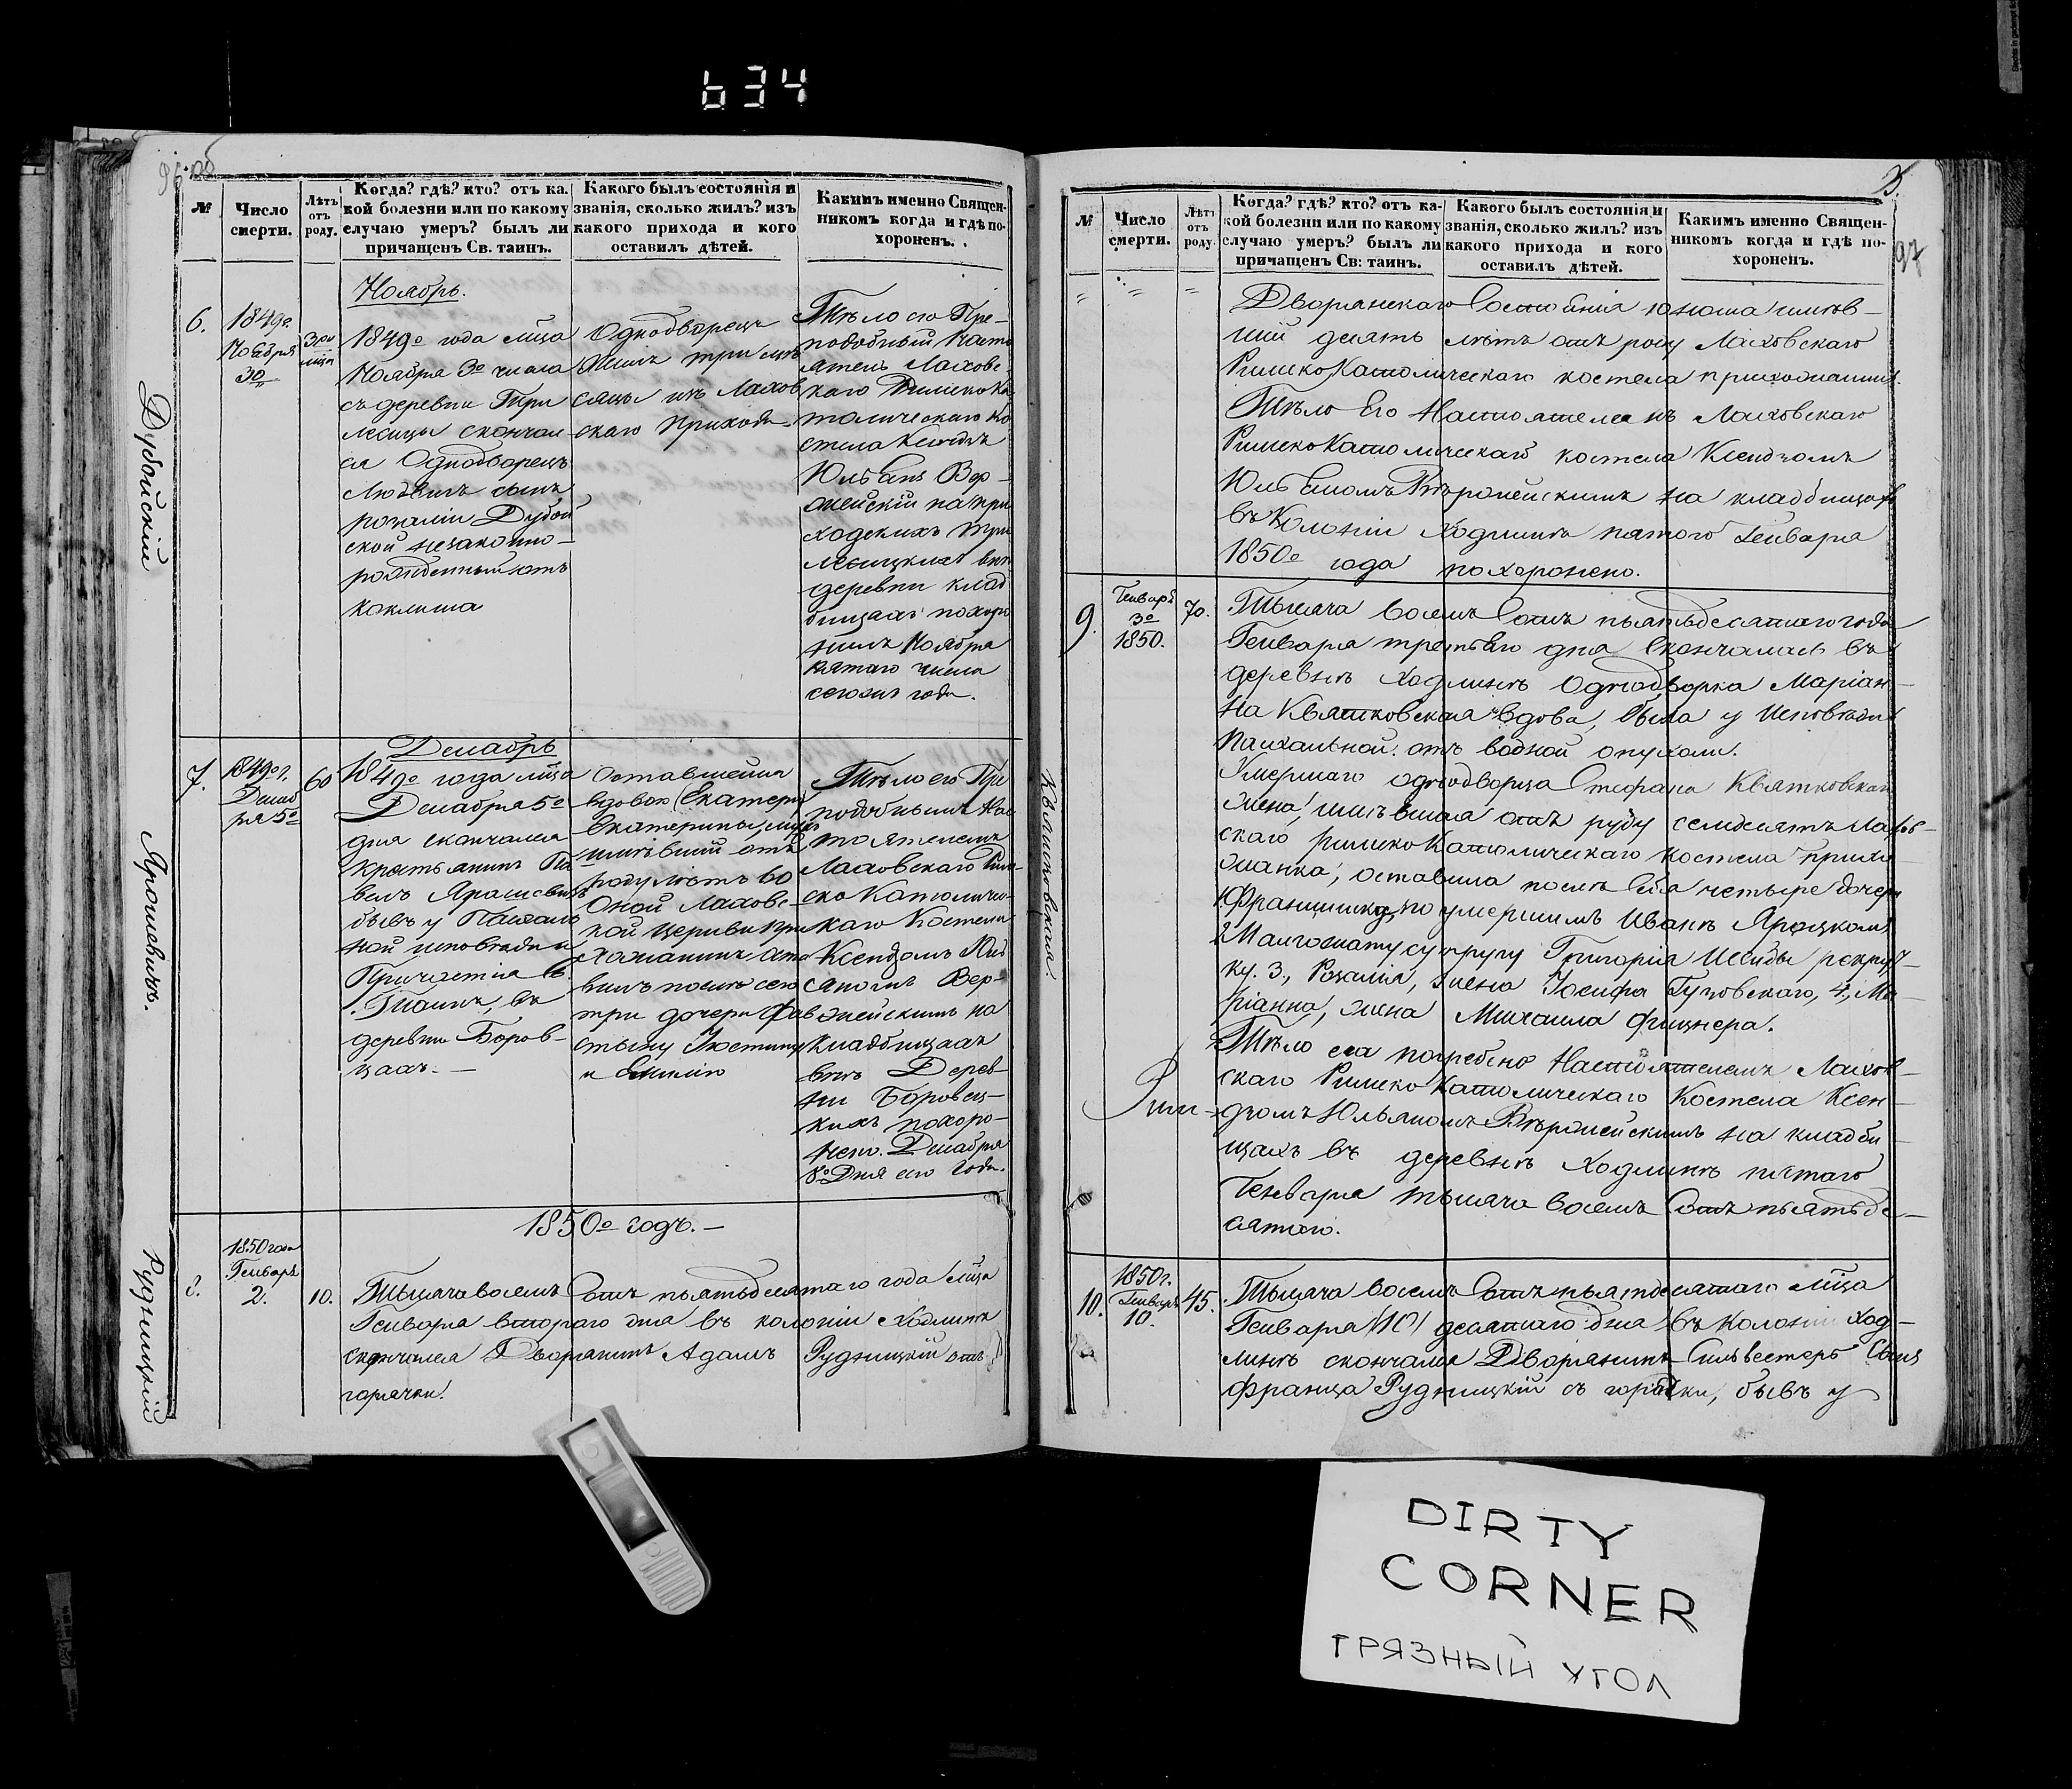 634
96 об
№
Число смерти.
Лѣтъ отъ роду.
Когда? гдѣ? кто? отъ ка-
кой болезни или по какому
случаю умеръ? былъ ли
причащенъ Св. таинъ.
Какого былъ состоянія и
званія, сколько жилъ? изъ
какого прихода и кого
оставилъ дѣтей.
Какимъ именно Священ-
никомъ когда и гдѣ по-
хороненъ.
Дубойскій
6.
1849о
Ноября
3о
Ноябрь.
1849о года мца
Ноября 3о числа
съ деревни Три
лесицы скончал
ся Однодворецъ
Людвигъ сынъ
розаліи Дубой
ской незаконно-
рожденный отъ
коклюша
Однодворецъ
Жилъ три мѣ
сяцы изъ Лахов
скаго прихода
Тѣло его Пре-
подобный Насто
ятель Лаховс-
каго Римско Ка
толическаго ко
стела Ксендзъ
Юльянъ Вер-
жейскій на при
ходскихъ Три
лесицкихъ внѣ
деревни клад
бищахъ похоро
нилъ Ноября
пятаго числа
сегожъ года.
Ярошевичъ.
7.
1849о г.
Декаб
ря 5о
60
Декабрь
1849о года мца
Декабря 5о
дня скончался
Крестьянинъ Па
велъ Ярошевичъ
бывъ у Пасхаль
ной исповѣди и
Причастія Св.
Таинъ, въ
деревни Боров-
цахъ.—
Оставшейся
вдовою (Екатери)
Екатерины мужъ
имѣвшій отъ
роду лѣтъ 60
Оной Лаховс-
кой церкви при
хожанинъ оста
вилъ послѣ сего
три дочери Фав
стыну Юстину
и Емилію
Тѣло его Пре
подобнымъ Нас
тоятелемъ
Лаховскаго Рим-
ско Католичес-
каго Костела
Ксендзомъ Юль
яномъ Вер-
жейскимъ на
кладбищахъ
внѣ Дерев-
ни Боровец-
кихъ похоро-
нено. Декабря
8о Дня его Года.
1850о годъ.—
Рудницкій
8.
1850 года
Генваря
2.
10.
Тысяча восемь Сотъ пятьдесятаго года мца
Генваря втораго дня въ колоніи Ходлинѣ
скончался Дворянинъ Адамъ Рудницкій отъ
горячки!
3.
97
№
Число смерти.
Лѣтъ отъ роду.
Когда? гдѣ? кто? отъ ка-
кой болезни или по какому
случаю умеръ? былъ ли
причащенъ Св: таинъ.
Какого былъ состоянія и
званія, сколько жилъ? изъ
какого прихода и кого
оставилъ дѣтей.
Какимъ именно Священ-
никомъ когда и гдѣ по-
хороненъ.
Дворянскаго Состоянія юноша имѣв-
шій десять лѣтъ отъ роду Лаховскаго
РимскоКатолическаго костела прихожанинъ.
Тѣло Его Настоятелемъ Лаховскаго
РимскоКатолическаго костела Ксендзомъ
Юльяномъ Вержейскимъ на кладбищахъ
въ Колоніи Ходлинѣ пятого Генваря
1850о года похоронено.
Квятковская.
9.
Генваря
3о
1850.
70.
Тысяча восемь Сотъ пятьдесятаго года
Генваря третьяго дня скончалась въ
деревнѣ Ходлинѣ Однодворка Маріан-
на Квятковская вдова, была у Исповѣди
Пасхальной. отъ водной опухоли.
Умершаго однодворца Стефана Квятковскаго
жена, имѣвшая отъ руду семдесятъ Лахов-
скаго римскоКатолическаго костела прихо
жанка; оставила послѣ себя четыре дочери
1. Францишку, по умершимъ Иванѣ Яроцкомъ
2. Малгожату супругу Григорія рекрут-
ку. 3., Розалія, жена Іосифа Гутовскаго, 4., Ма-
ріанна, жена Михаила Фицнера.
Тѣло ея погребено Настоятелемъ Лахов-
скаго Римско Католическаго Костела Ксен-
дзомъ Юльяномъ Вержейскимъ на кладби
щахъ въ деревнѣ Ходлинѣ пятаго
Генваря тысяча восемь Сотъ пятьде-
сятаго.
10.
1850 г.
Генваря
10.
45.
Тысяча восемь Сотъ пятдесятаго мца
Генваря /10/ десятаго дня въ колоніи Ход-
линѣ скончался Дворянинъ Сильвестеръ Сынъ
Франца Рудницкій съ горячки, бывъ у
DIRTY
CORNER
ГРЯЗНЫЙ УГОЛ